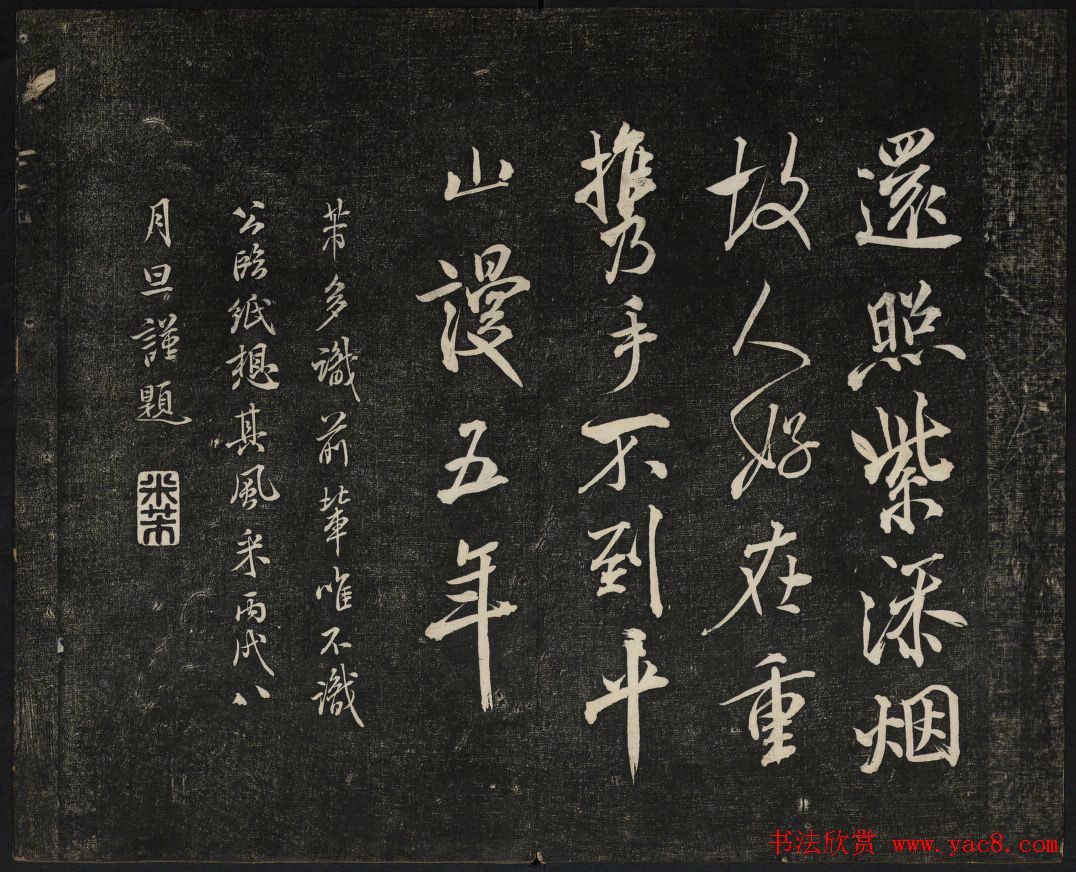 還照紫深烟
故人好在重
攜手不到平
山謾五年
芾多識前輩唯不識
公臨紙想其風采丙戌八
月旦謹題
米芾
书法欣赏 www.yac8.com